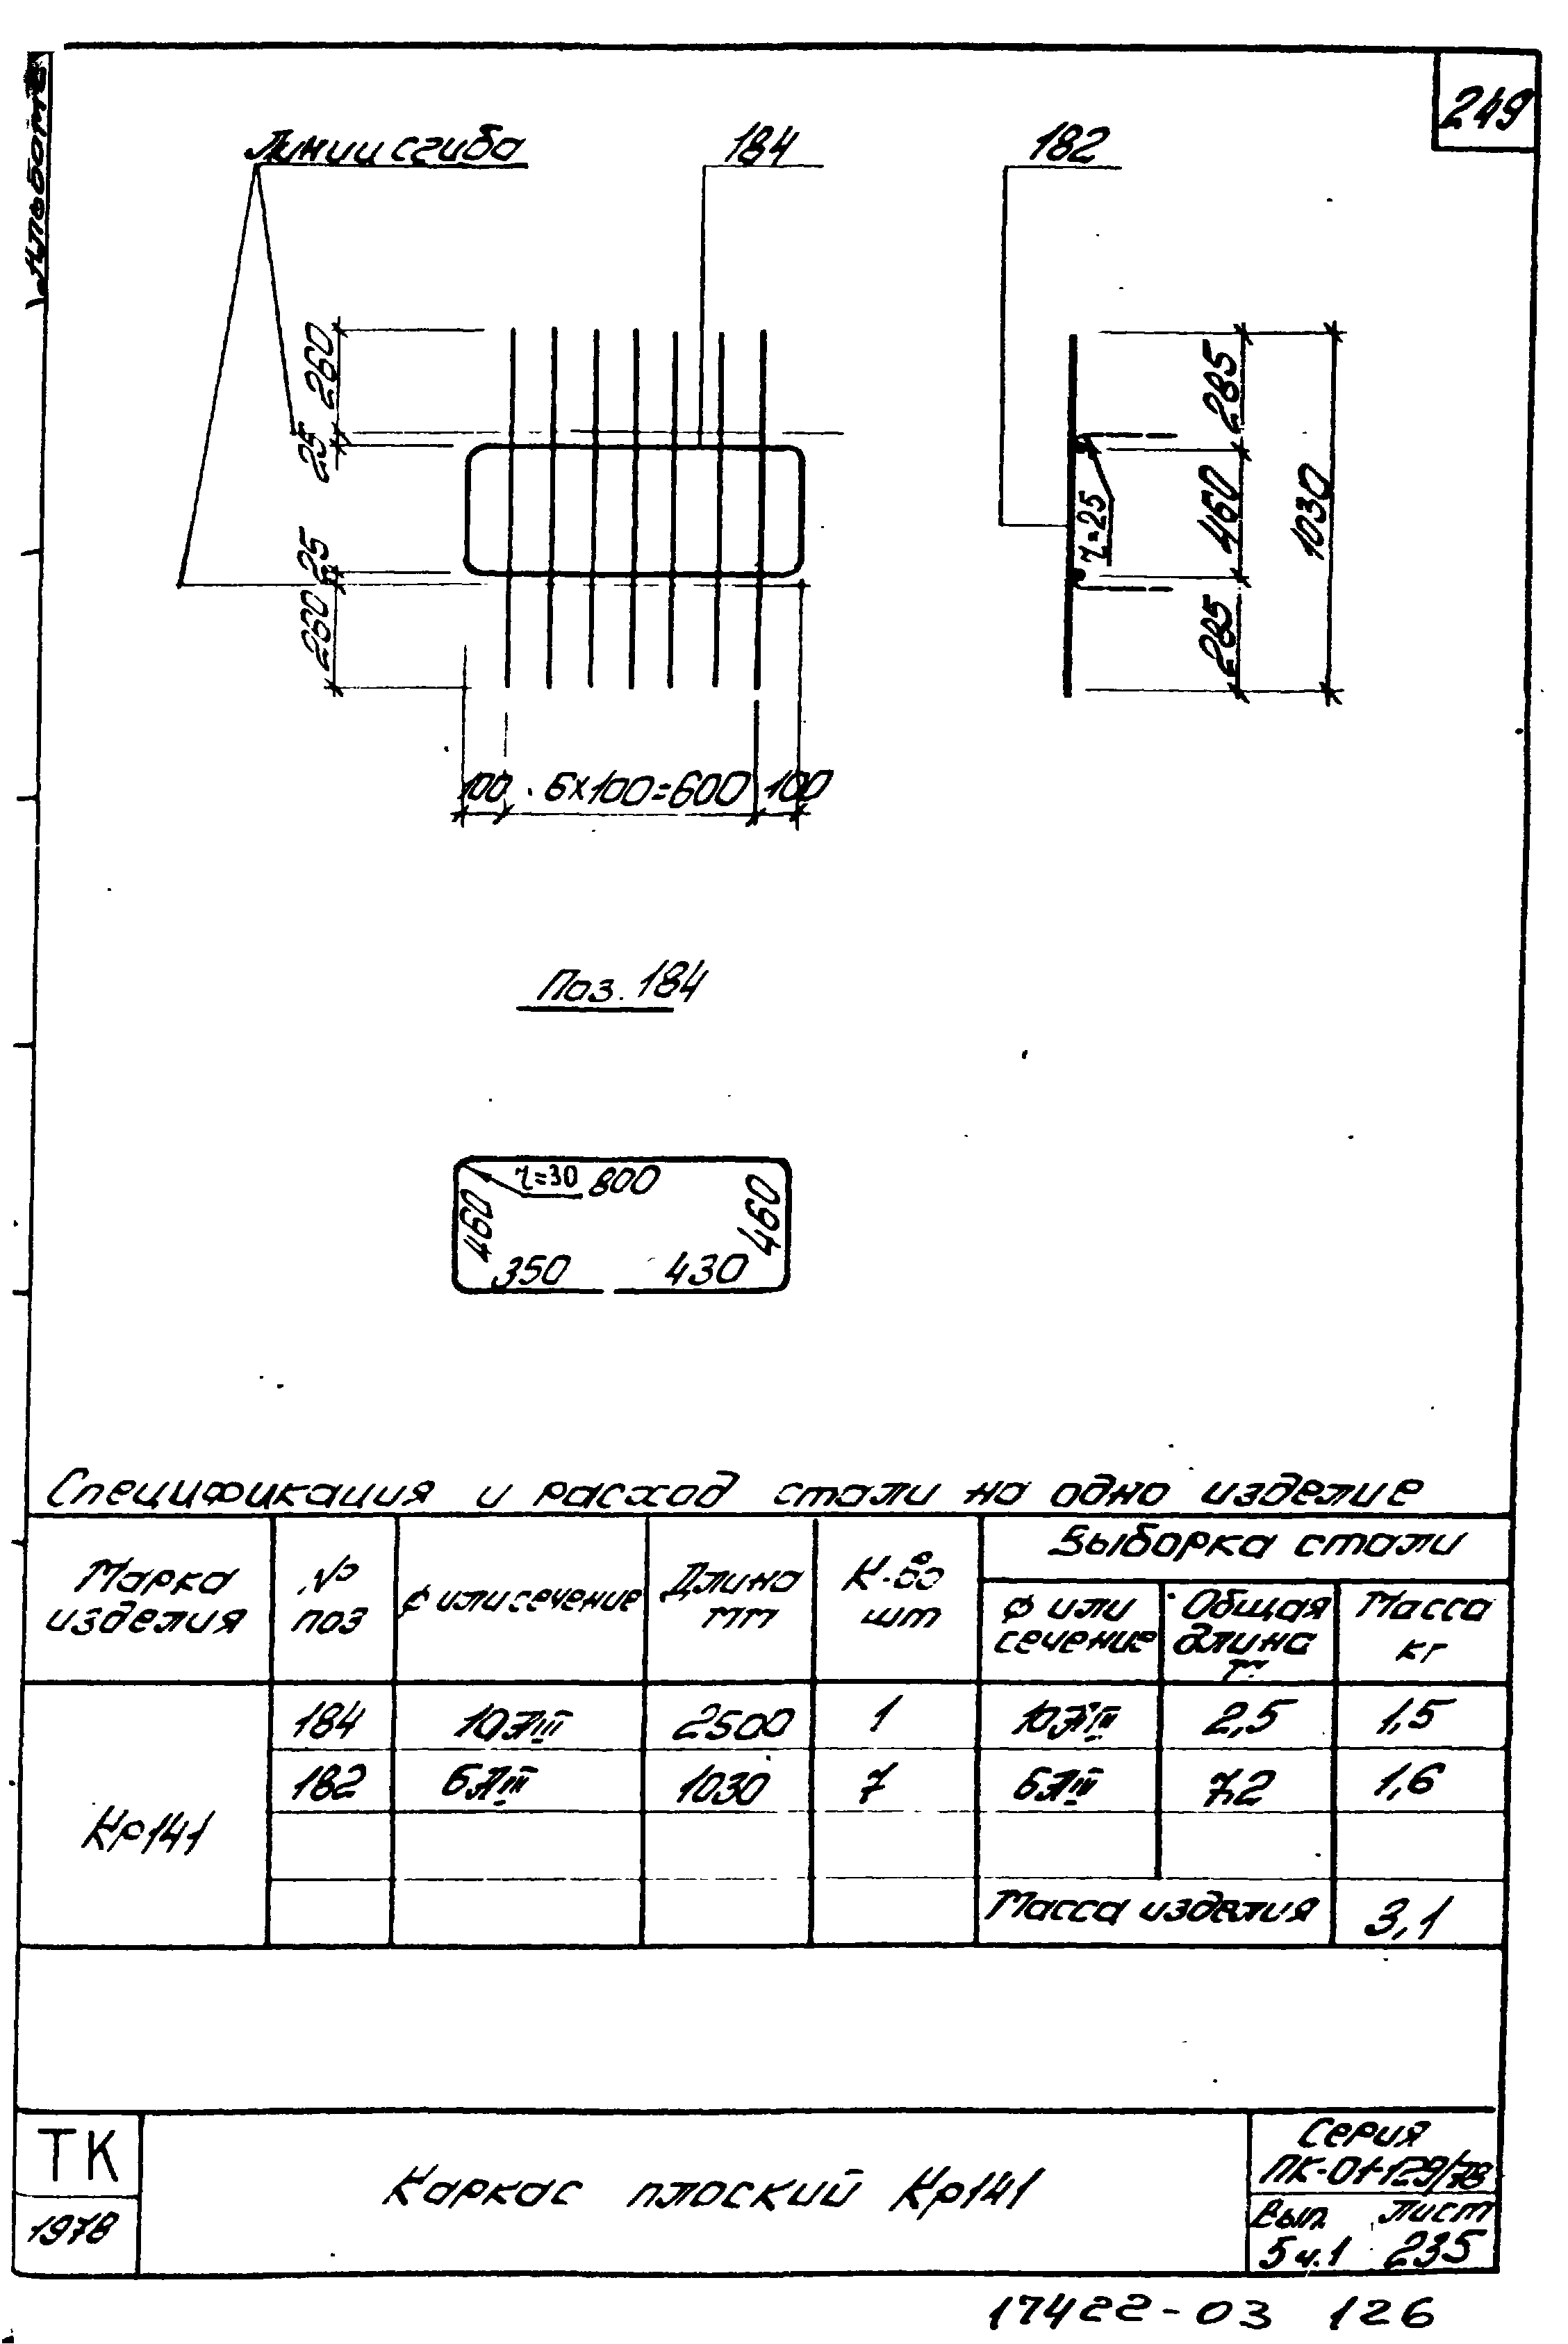 249
Линии сгиба
184
182
260
25
25
260
285
460
285
1030
r=25
100
6х100=600
100
Поз. 184
r=30
800
460
460
350
430
Спецификация и расход стали на одно изделие
Марка изделия
№ поз
ф или сечение
Длина мм
К-во шт
Выборка стали
ф или сечение
Общая длина м
Масса кг
Кр141
184 10АIII 2500 1 10АIII 2,5 1,5
182 6АIII 1030 7 6АIII 7,2 1,6
Масса изделия 3,1
ТК
1978
Каркас плоский Кр141
Серия
ПК-01-129/78
Вып. Лист
5 ч.1 235
17422-03 126